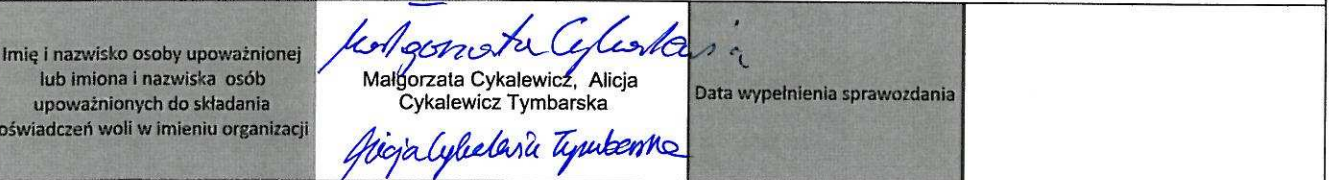 Imię i nazwisko osoby upoważnionej
lub imiona i nazwiska osób
upoważnionych do składania
oświadczeń woli w imieniu organizacji
Małgorzata Cykalewicz
Małgorzata Cykalewicz, Alicja
Cykalewicz Tymbarska
Alicja Cykalewicz Tymbarska
Data wypełnienia sprawozdania